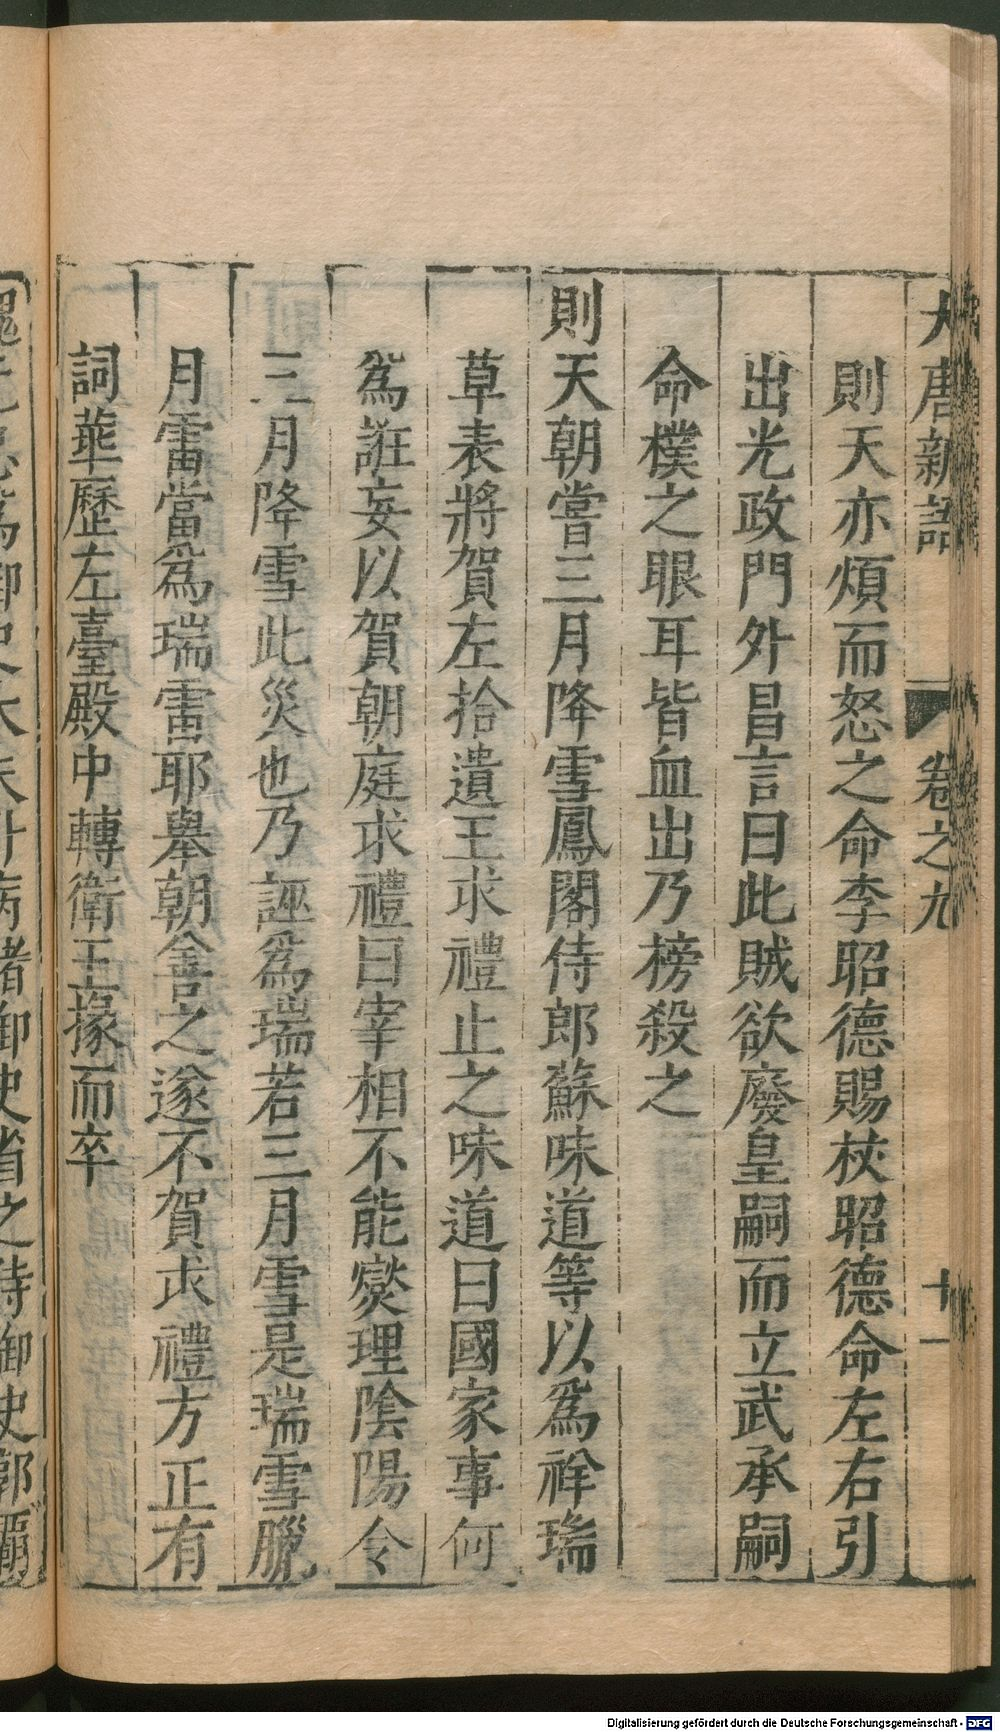 大唐新語 卷之九 十一
則天亦煩而怒之命李昭德賜杖昭德命左右引
出光政門外昌言曰此賊欲廢皇嗣而立武承嗣
命樸之眼耳皆血出乃榜殺之
則天朝嘗三月降雪鳳閣侍郎蘇味道等以爲祥瑞
草表將賀左拾遺王求禮止之味道曰國家事何
爲誑妄以賀朝庭求禮曰宰相不能燮理陰陽令
三月降雪此災也乃誣爲瑞若三月雪是瑞雪臘
月雷當爲瑞雷耶舉朝善之遂不賀求禮方正有
詞華歷左臺殿中轉衛王掾而卒
御史大夫 病諸御史省之侍御史郭霸
Digitalisierung gefördert durch die Deutsche Forschungsgemeinschaft - DFG